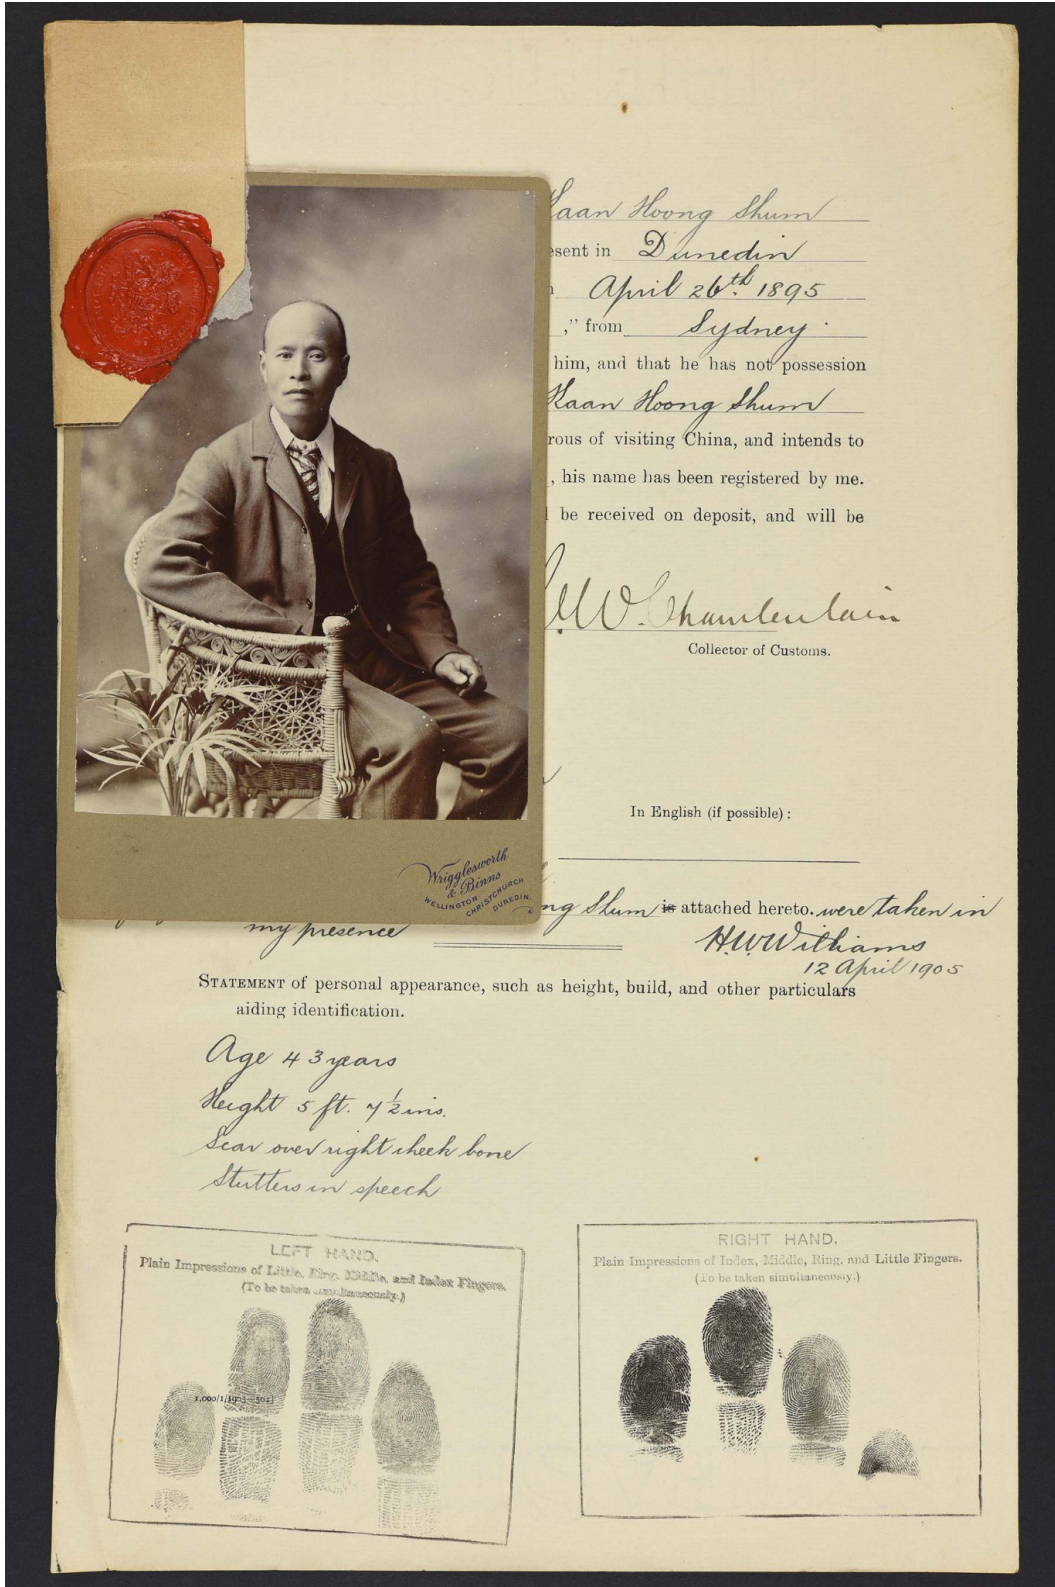 Kaan Hoong Shum
esent in Dunedin
April 26th. 1895
," from Sydney.
him, and that he has not possession
Kaan Hoong Shum
rous of visiting China, and intends to
, his name has been registered by me.
be received on deposit, and will be
W. Chamberlain
Collector of Customs.
In English (if possible) :
Wrigglesworth
& Binns
WELLINGTON CHRISTCHURCH
DUNEDIN.
ng Shum is attached hereto. were taken in
my presence
H.W. Williams
12 April 1905
STATEMENT of personal appearance, such as height, build, and other particulars
aiding identification.
Age 43 years
Height 5 ft. 7 1/2 ins.
Scar over right cheek bone
Stutters in speech
LEFT HAND.
Plain Impressions of Little, Ring, Middle, and Index Fingers.
(To be taken simultaneously.)
RIGHT HAND.
Plain Impressions of Index, Middle, Ring, and Little Fingers.
(To be taken simultaneously.)